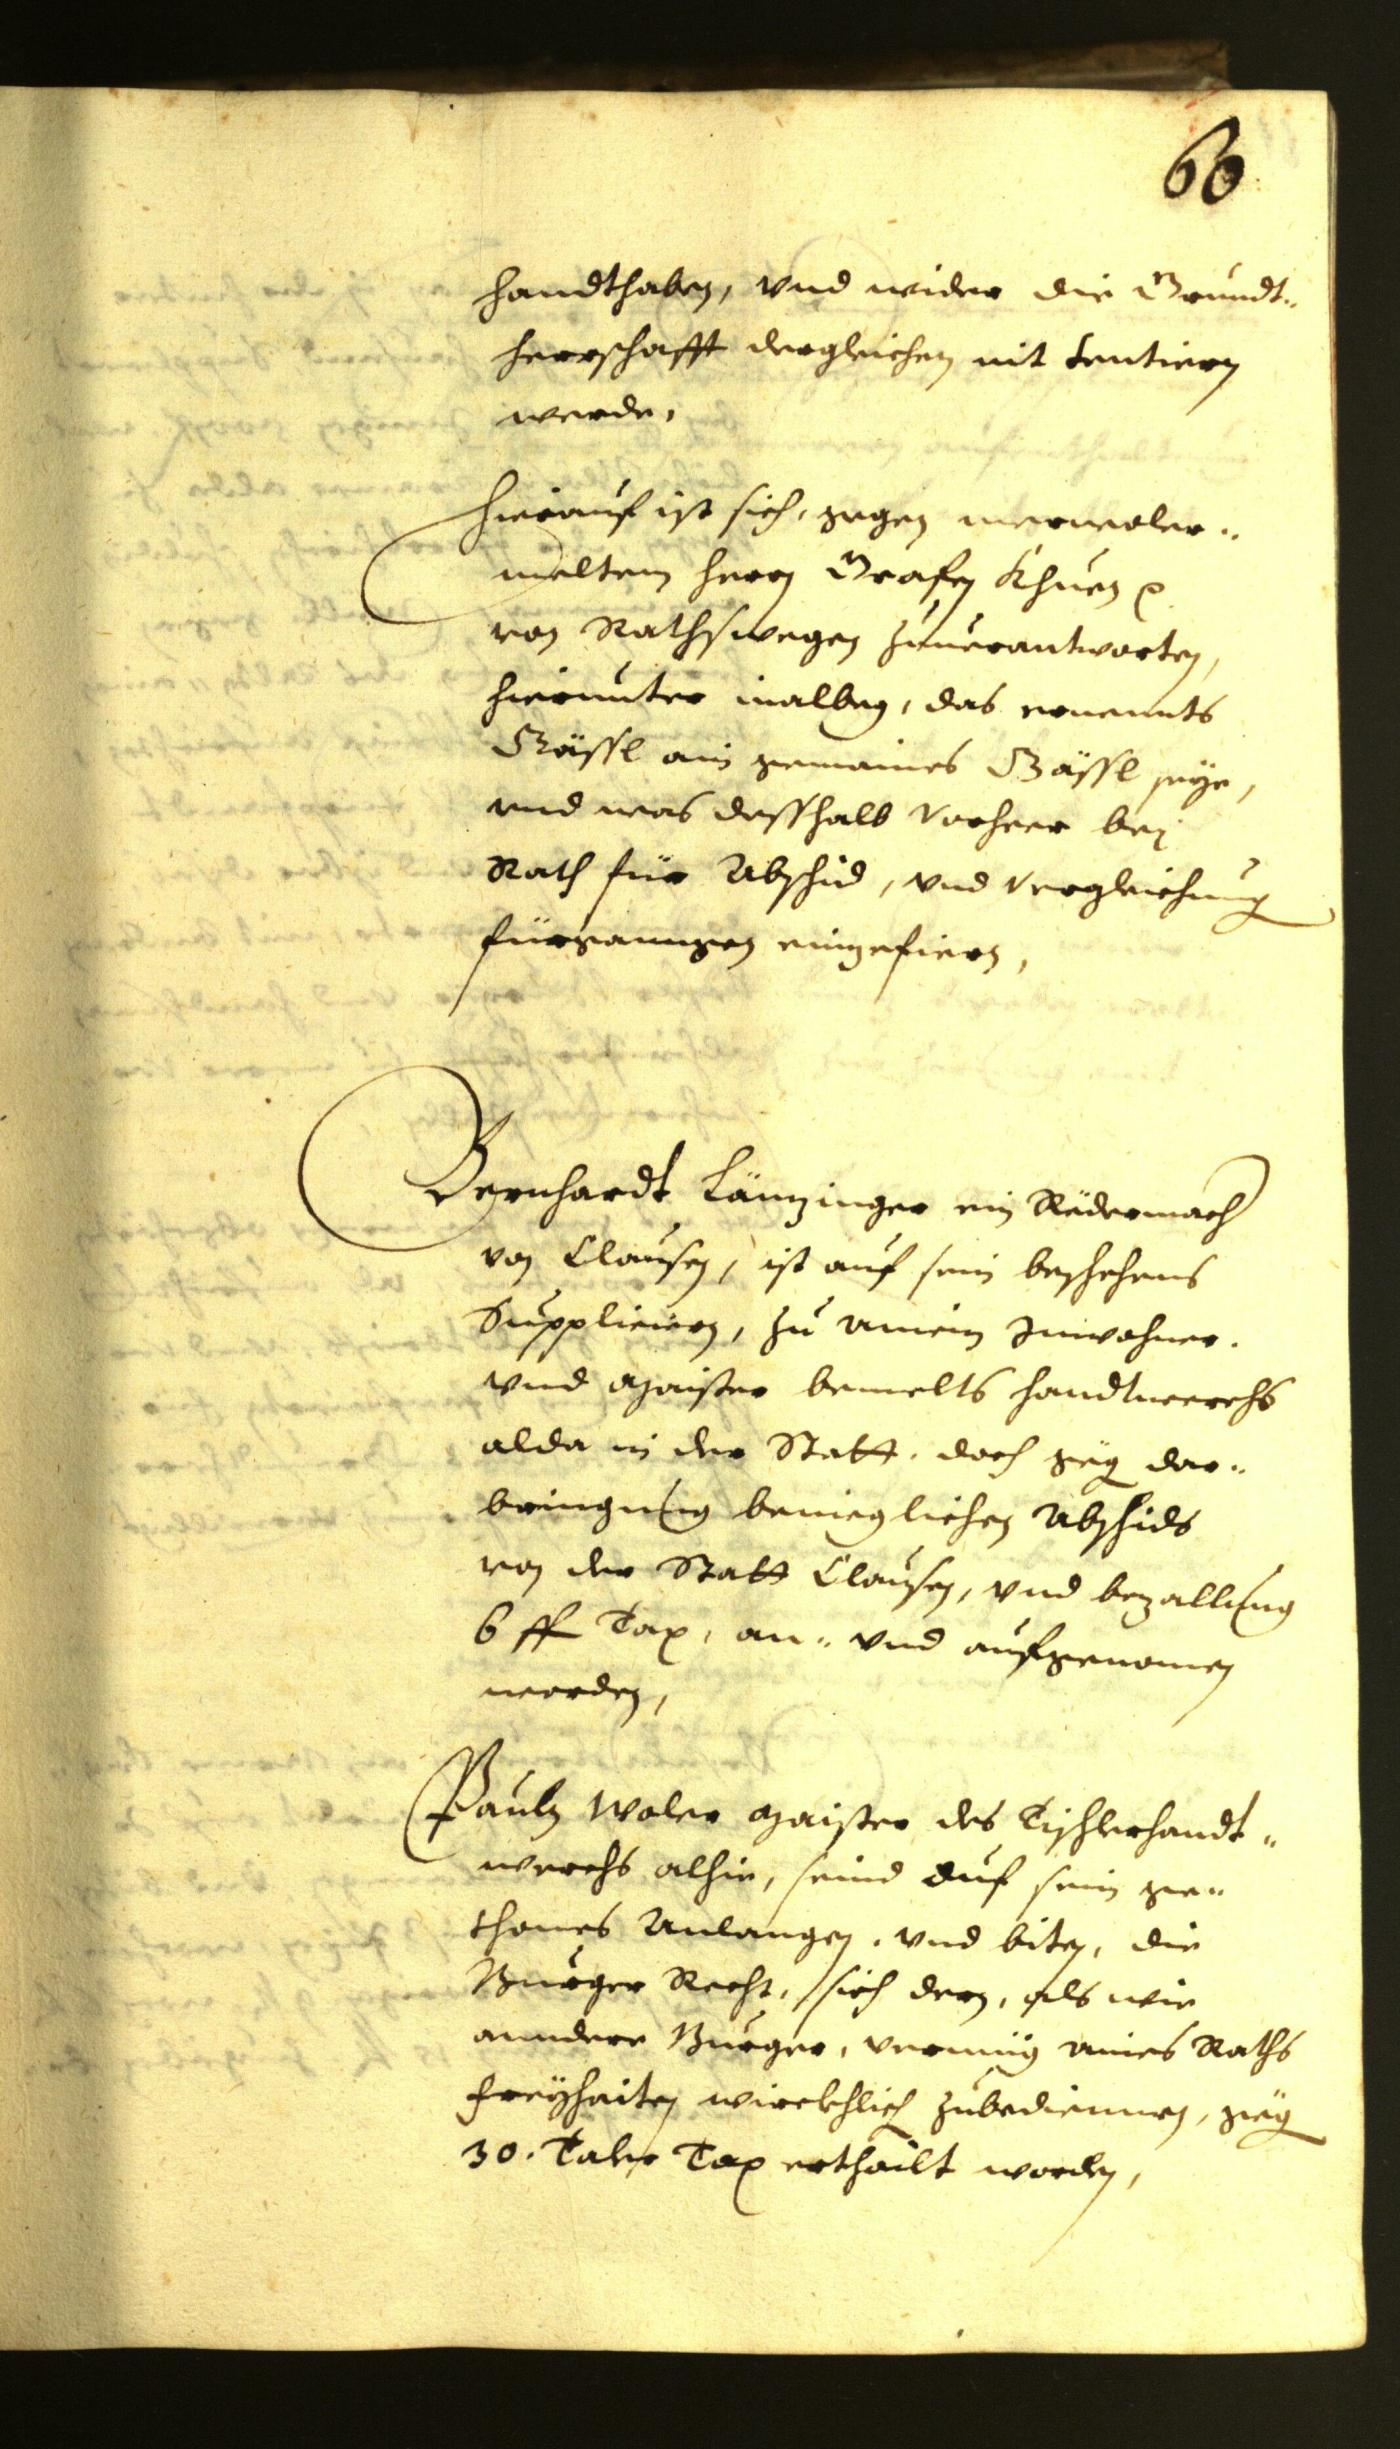 60
handthaben, vnd wider die Grundt„
herrschafft dergleichen nit tentiern
werde,
Hierauf ist sich, gegen merwoler„
melten herrn Grafen Khuen
von Rathswegen zuuerantworten,
hierunter inalben, das ernents
Gässl ain gemaines Gässl seye,
vnd was desshalb vorheer bej
Rath für Abschid, vnd vergleichung
fürgangen eingefiern,
Bernhardt Länzinger ein Rädermach
von Clausen, ist auf sein beschehens
Suppliciern, zu ainem Inwohner.
vnd Maister bemelts handtwerchs
alda in der Statt, doch geg dar„
bringung beniegelichen Abschids
von der Statt Clausen, vnd bezallung
6 ff Tax, an„ vnd aufgenomen
worden,
Pauln Waler Maister des Tischlerhandt„
werchs alhie, seind auf sein ge„
thones Anlangen, vnd biten, die
Burger Recht, sich dern, als wie
anndere Burger, vermüg aines Raths
freyhaiten wirckhlich zubediennen, geg
30. Taler Tax erthailt worden,